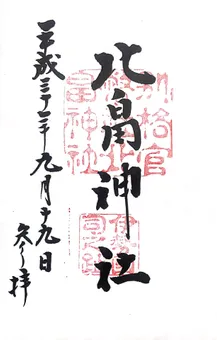 北畠神社
平成三十年九月十九日
参拝
別格官
幣社北
畠神社